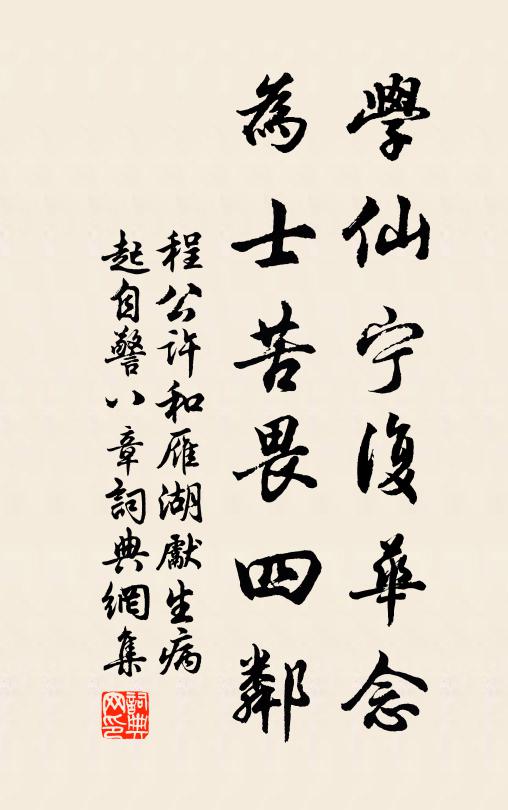 學仙宁復華念
為士苦畏四鄰
程公许和雁湖獻生病
起自警八章詞典網集
詞典网印